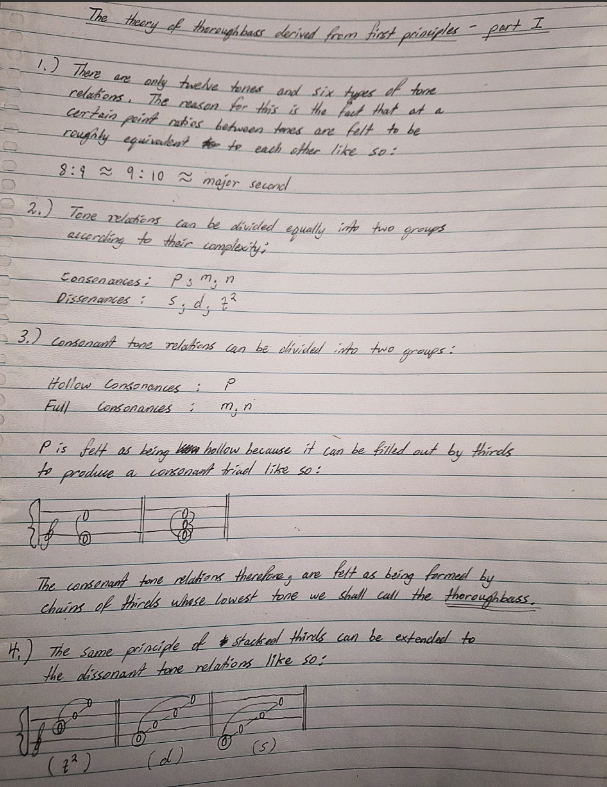 The theory of thoroughbass derived from first principles - part I
1.) There are only twelve tones and six types of tone
relations. The reason for this is the fact that at a
certain point ratios between tones are felt to be
roughly equivalent to each other like so:
8:9 ≈ 9:10 ≈ major second
2.) Tone relations can be divided equally into two groups
according to their complexity:
Consonances: p, m, n
Dissonances: s, d, z²
3.) Consonant tone relations can be divided into two groups:
Hollow Consonances: p
Full Consonances: m, n
P is felt as being hollow because it can be filled out by thirds
to produce a consonant triad like so:
The consonant tone relations therefore, are felt as being formed by
chains of thirds whose lowest tone we shall call the thoroughbass.
4.) The same principle of stacked thirds can be extended to
the dissonant tone relations like so:
(z²) (d) (s)